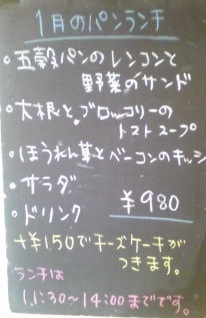 1月のパンランチ
・五穀パンのレンコンと
野菜のサンド
・大根とブロッコリーの
トマトスープ
・ほうれん草とベーコンのキッシュ
・サラダ
・ドリンク ¥980
+¥150でチーズケーキが
つきます。
ランチは
11:30~14:00までです。